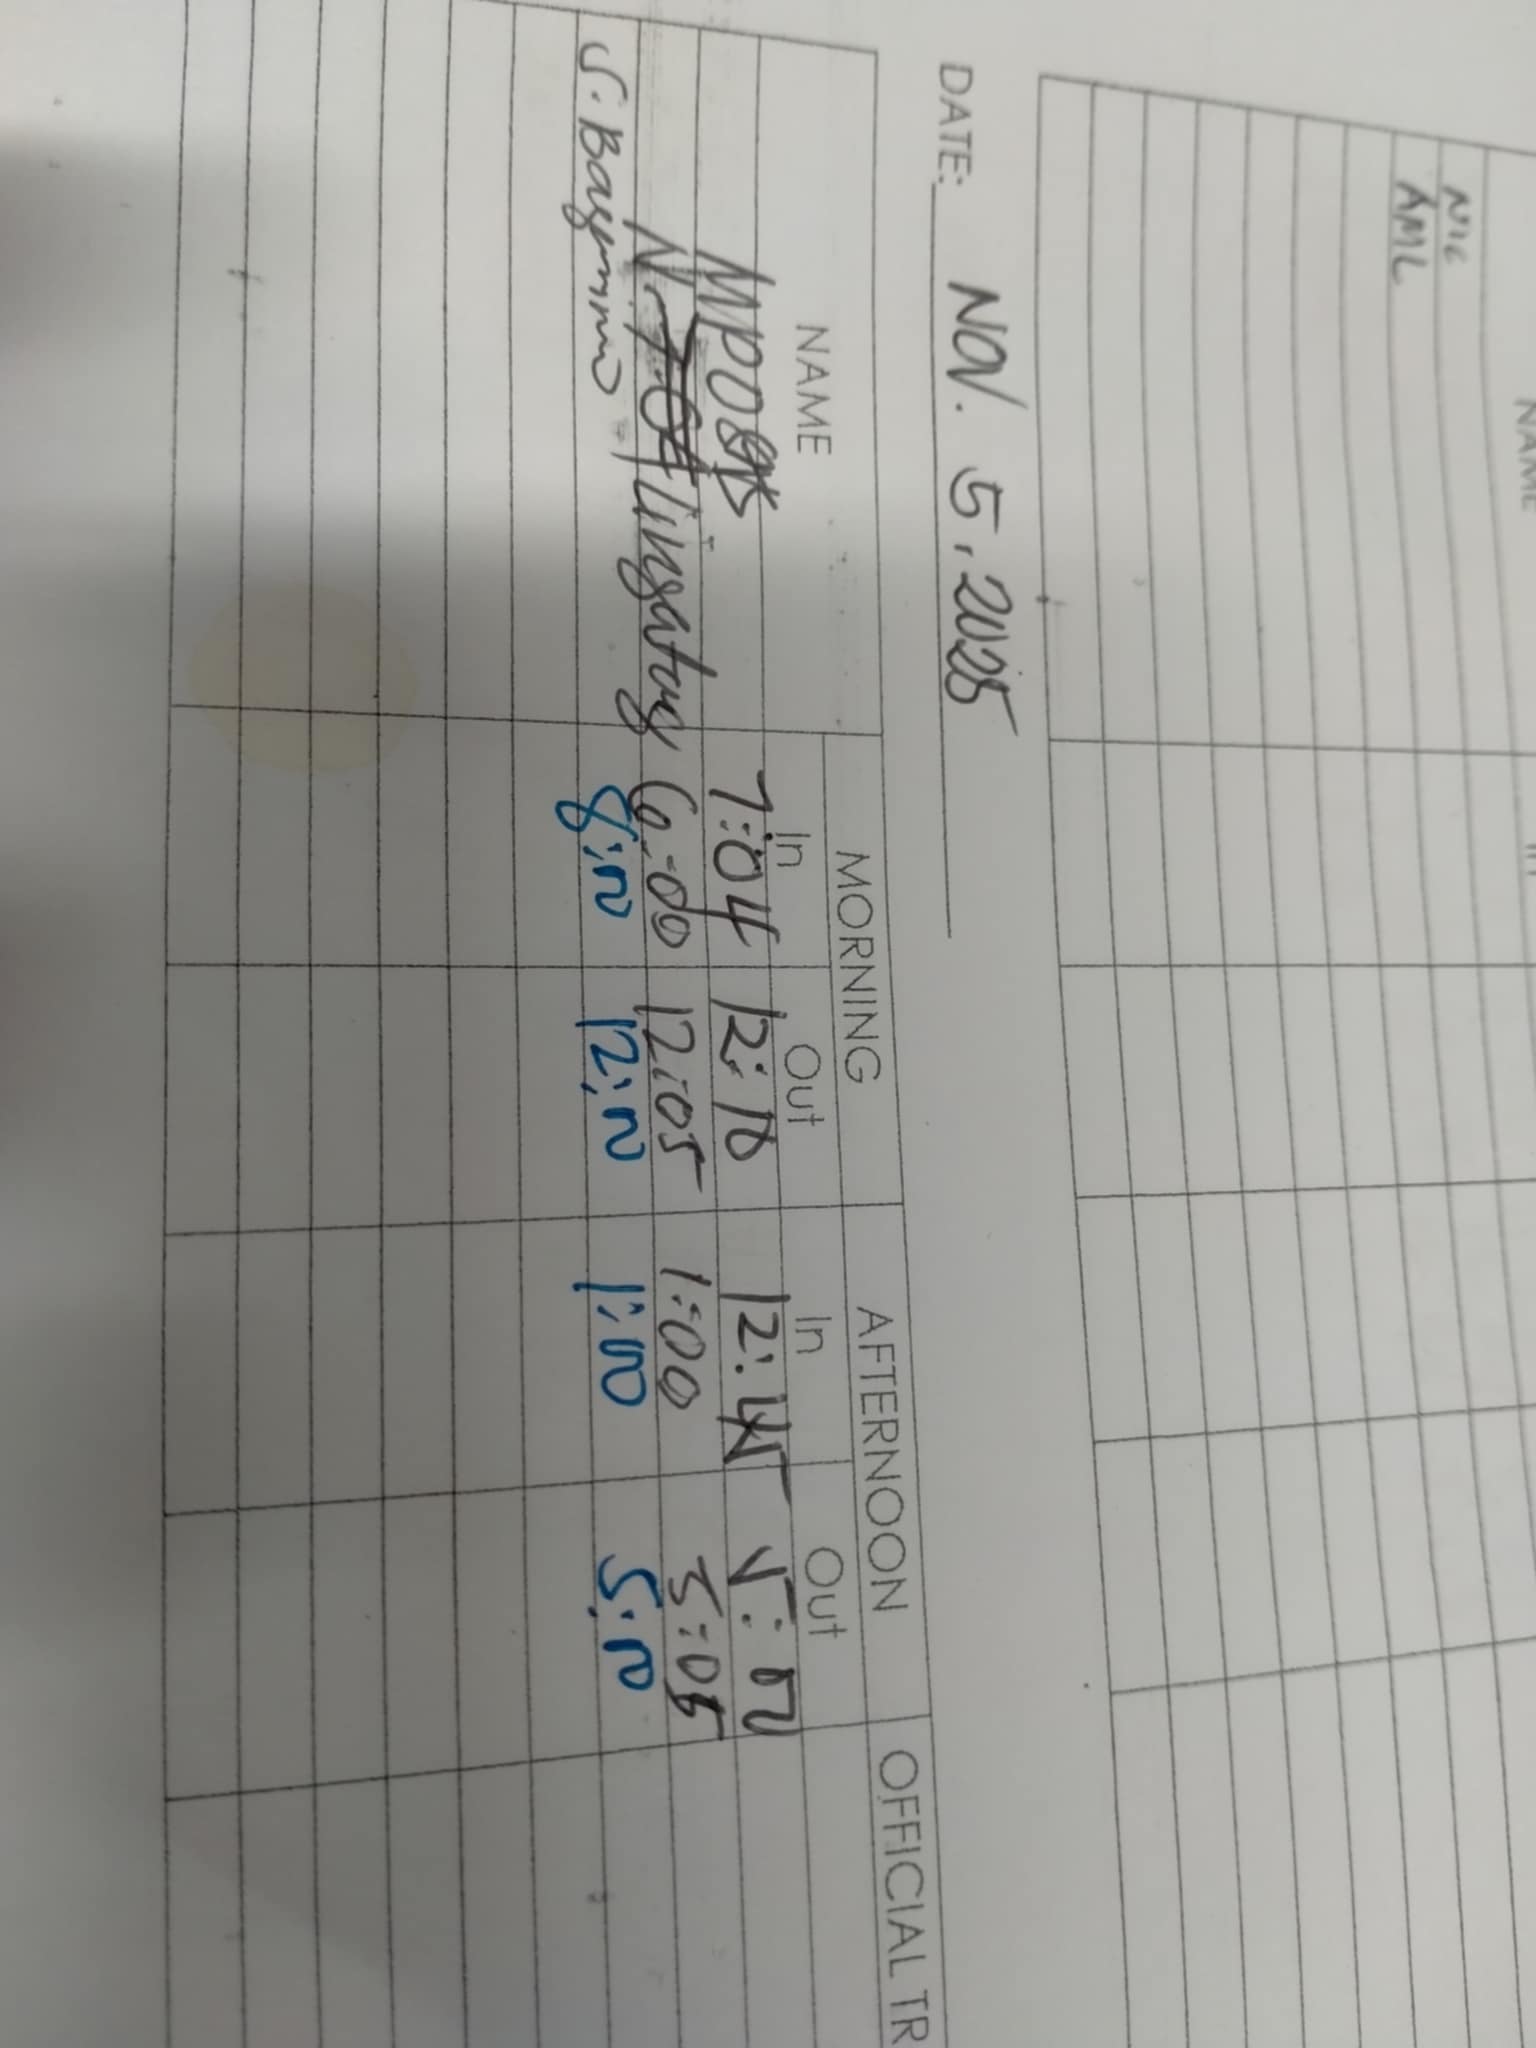 NAME
In
NIC
AML
DATE: NOV. 5, 2025
NAME MORNING AFTERNOON OFFICIAL TR
In Out In Out
7:04 12:10 12:45 5:02
Lingatong 6:00 12:05 1:00 5:05
8:00 12:00 1:00 5:00